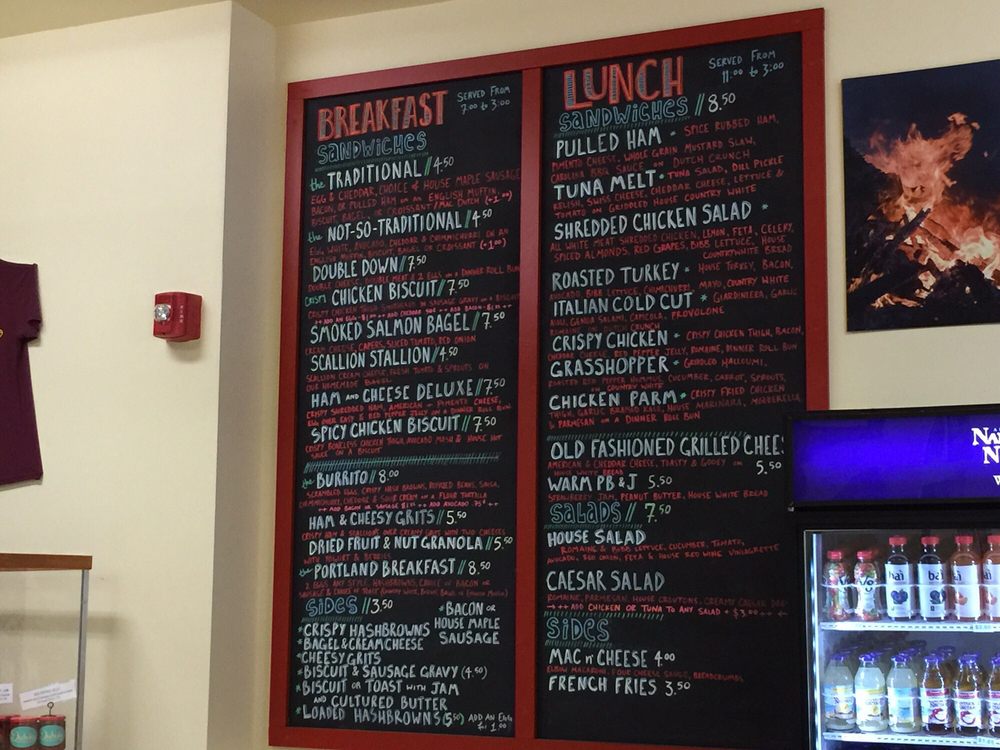 BREAKFAST
SERVED FROM
7:00 to 3:00
SANDWICHES
the TRADITIONAL // 4.50
EGG & CHEDDAR, CHOICE of HOUSE MAPLE SAUSAGE
BACON, or PULLED HAM on an ENGLISH MUFFIN,
BISCUIT, BAGEL, or CROISSANT / MAC DUTCH (+1.00)
the NOT-SO-TRADITIONAL // 4.50
EGG WHITE, AVOCADO, CHEDDAR & CHIMMICHURRI on AN
ENGLISH MUFFIN, BISCUIT, BAGEL or CROISSANT (+1.00)
DOUBLE DOWN // 7.50
DOUBLE CHEESE, DOUBLE MEAT & 2 EGGS on a DINNER ROLL BUN
CRISPY CHICKEN BISCUIT // 7.50
CRISPY CHICKEN THIGH SMOTHERED in SAUSAGE GRAVY on a BISCUIT
SMOKED SALMON BAGEL // 7.50
CREAM CHEESE, CAPERS, SLICED TOMATO, RED ONION
SCALLION STALLION // 4.50
SCALLION CREAM CHEESE, FRESH TOMATO & SPROUTS on
OUR HOMEMADE BAGEL
HAM AND CHEESE DELUXE // 7.50
CRISPY SHREDDED HAM, AMERICAN & PIMENTO CHEESE,
EGG OVER EASY & RED PEPPER JELLY on a DINNER ROLL BUN
SPICY CHICKEN BISCUIT // 7.50
CRISPY BONELESS CHICKEN THIGH, AVOCADO MASH & HOUSE HOT
SAUCE on A BISCUIT
the BURRITO // 8.00
SCRAMBLED EGGS, CRISPY HASH BROWNS, REFRIED BEANS, SALSA,
CHIMMICHURRI, CHEDDAR & SOUR CREAM on a FLOUR TORTILLA
HAM & CHEESY GRITS // 5.50
CRISPY HAM & SCALLIONS OVER CREAMY GRITS WITH TWO CHEESES
DRIED FRUIT & NUT GRANOLA // 5.50
WITH YOGURT & BERRIES
the PORTLAND BREAKFAST // 8.50
2 EGGS ANY STYLE, HASHBROWNS, CHOICE of BACON or
SAUSAGE & CHOICE of TOAST (COUNTRY WHITE, BROWN, BAGEL or ENGLISH MUFFIN)
SIDES // 3.50
* CRISPY HASHBROWNS
* BAGEL & CREAMCHEESE
* CHEESY GRITS
* BISCUIT & SAUSAGE GRAVY (4.50)
* BISCUIT or TOAST WITH JAM
AND CULTURED BUTTER
* LOADED HASHBROWNS (5.50) ADD AN EGG
for 1.00
* BACON or
HOUSE MAPLE
SAUSAGE
LUNCH
SERVED FROM
11:00 to 3:00
SANDWICHES // 8.50
PULLED HAM * SPICE RUBBED HAM,
PIMENTO CHEESE, WHOLE GRAIN MUSTARD SLAW,
CAROLINA BBQ SAUCE on DUTCH CRUNCH
TUNA MELT * TUNA SALAD, DILL PICKLE
RELISH, SWISS CHEESE, CHEDDAR CHEESE, LETTUCE &
TOMATO on GRIDDLED HOUSE COUNTRY WHITE
SHREDDED CHICKEN SALAD *
ALL WHITE MEAT SHREDDED CHICKEN, LEMON, FETA, CELERY,
SPICED ALMONDS, RED GRAPES, BIBB LETTUCE, HOUSE
COUNTRYWHITE BREAD
ROASTED TURKEY * HOUSE TURKEY, BACON,
AVOCADO, BIBB LETTUCE, CHIMICHURRI, MAYO, COUNTRY WHITE
ITALIAN COLD CUT * GIARDINIERA, GARLIC
AIOLI, GENOA SALAMI, CAPICOLA, PROVOLONE
ROMAINE on DUTCH CRUNCH
CRISPY CHICKEN * CRISPY CHICKEN THIGH, BACON,
CHEDDAR CHEESE, RED PEPPER JELLY, ROMAINE, DINNER ROLL BUN
GRASSHOPPER * GRIDDLED HALLOUMI,
ROASTED RED PEPPER HUMMUS, CUCUMBER, CARROT, SPROUTS,
on COUNTRY WHITE
CHICKEN PARM * CRISPY FRIED CHICKEN
THIGH, GARLIC BRAISED KALE, HOUSE MARINARA, MOZZERELLA
& PARMESAN on a DINNER ROLL BUN
OLD FASHIONED GRILLED CHEES
AMERICAN & CHEDDAR CHEESE, TOASTY & GOOEY on 5.50
HOUSE WHITE BREAD
WARM PB & J 5.50
STRAWBERRY JAM, PEANUT BUTTER, HOUSE WHITE BREAD
SALADS // 7.50
HOUSE SALAD
ROMAINE & BIBB LETTUCE, CUCUMBER, TOMATO,
AVOCADO, RED ONION, FETA & HOUSE RED WINE VINAIGRETTE
CAESAR SALAD
ROMAINE, PARMESAN, HOUSE CROUTONS, CREAMY CAESAR
ADD CHICKEN or TUNA TO ANY SALAD + $3.00
SIDES
MAC n' CHEESE 4.00
ELBOW MACARONI, FOUR CHEESE SAUCE, BREADCRUMBS
FRENCH FRIES 3.50
bai
bai